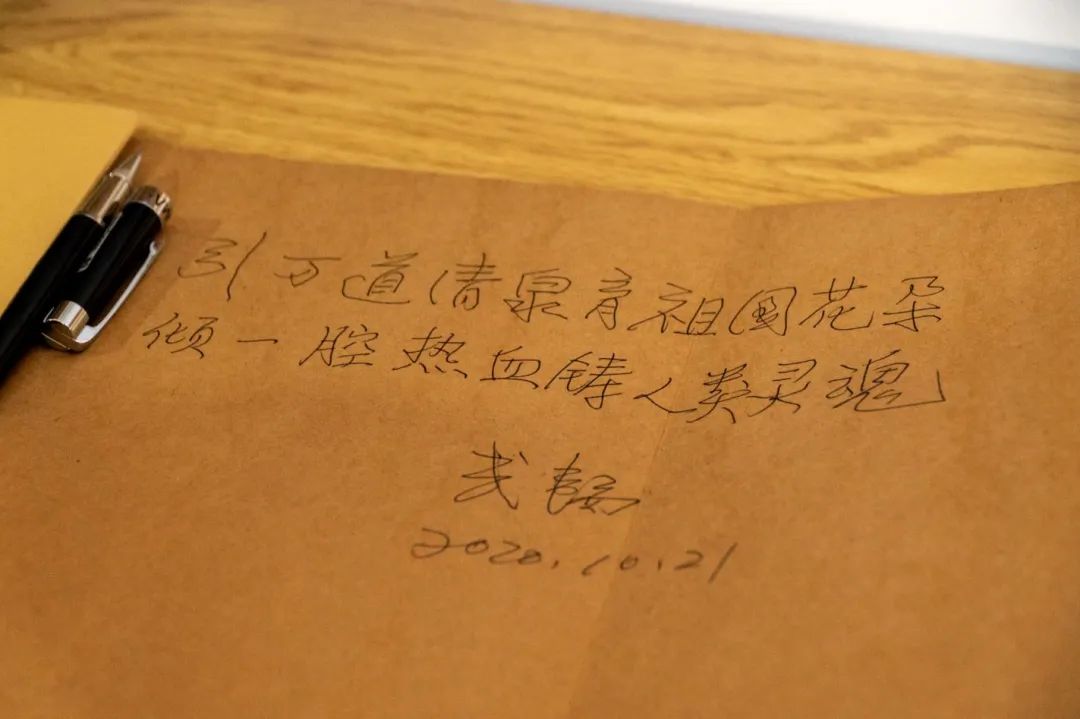 引万道清泉育祖国花朵
倾一腔热血铸人类灵魂
2020.10.21